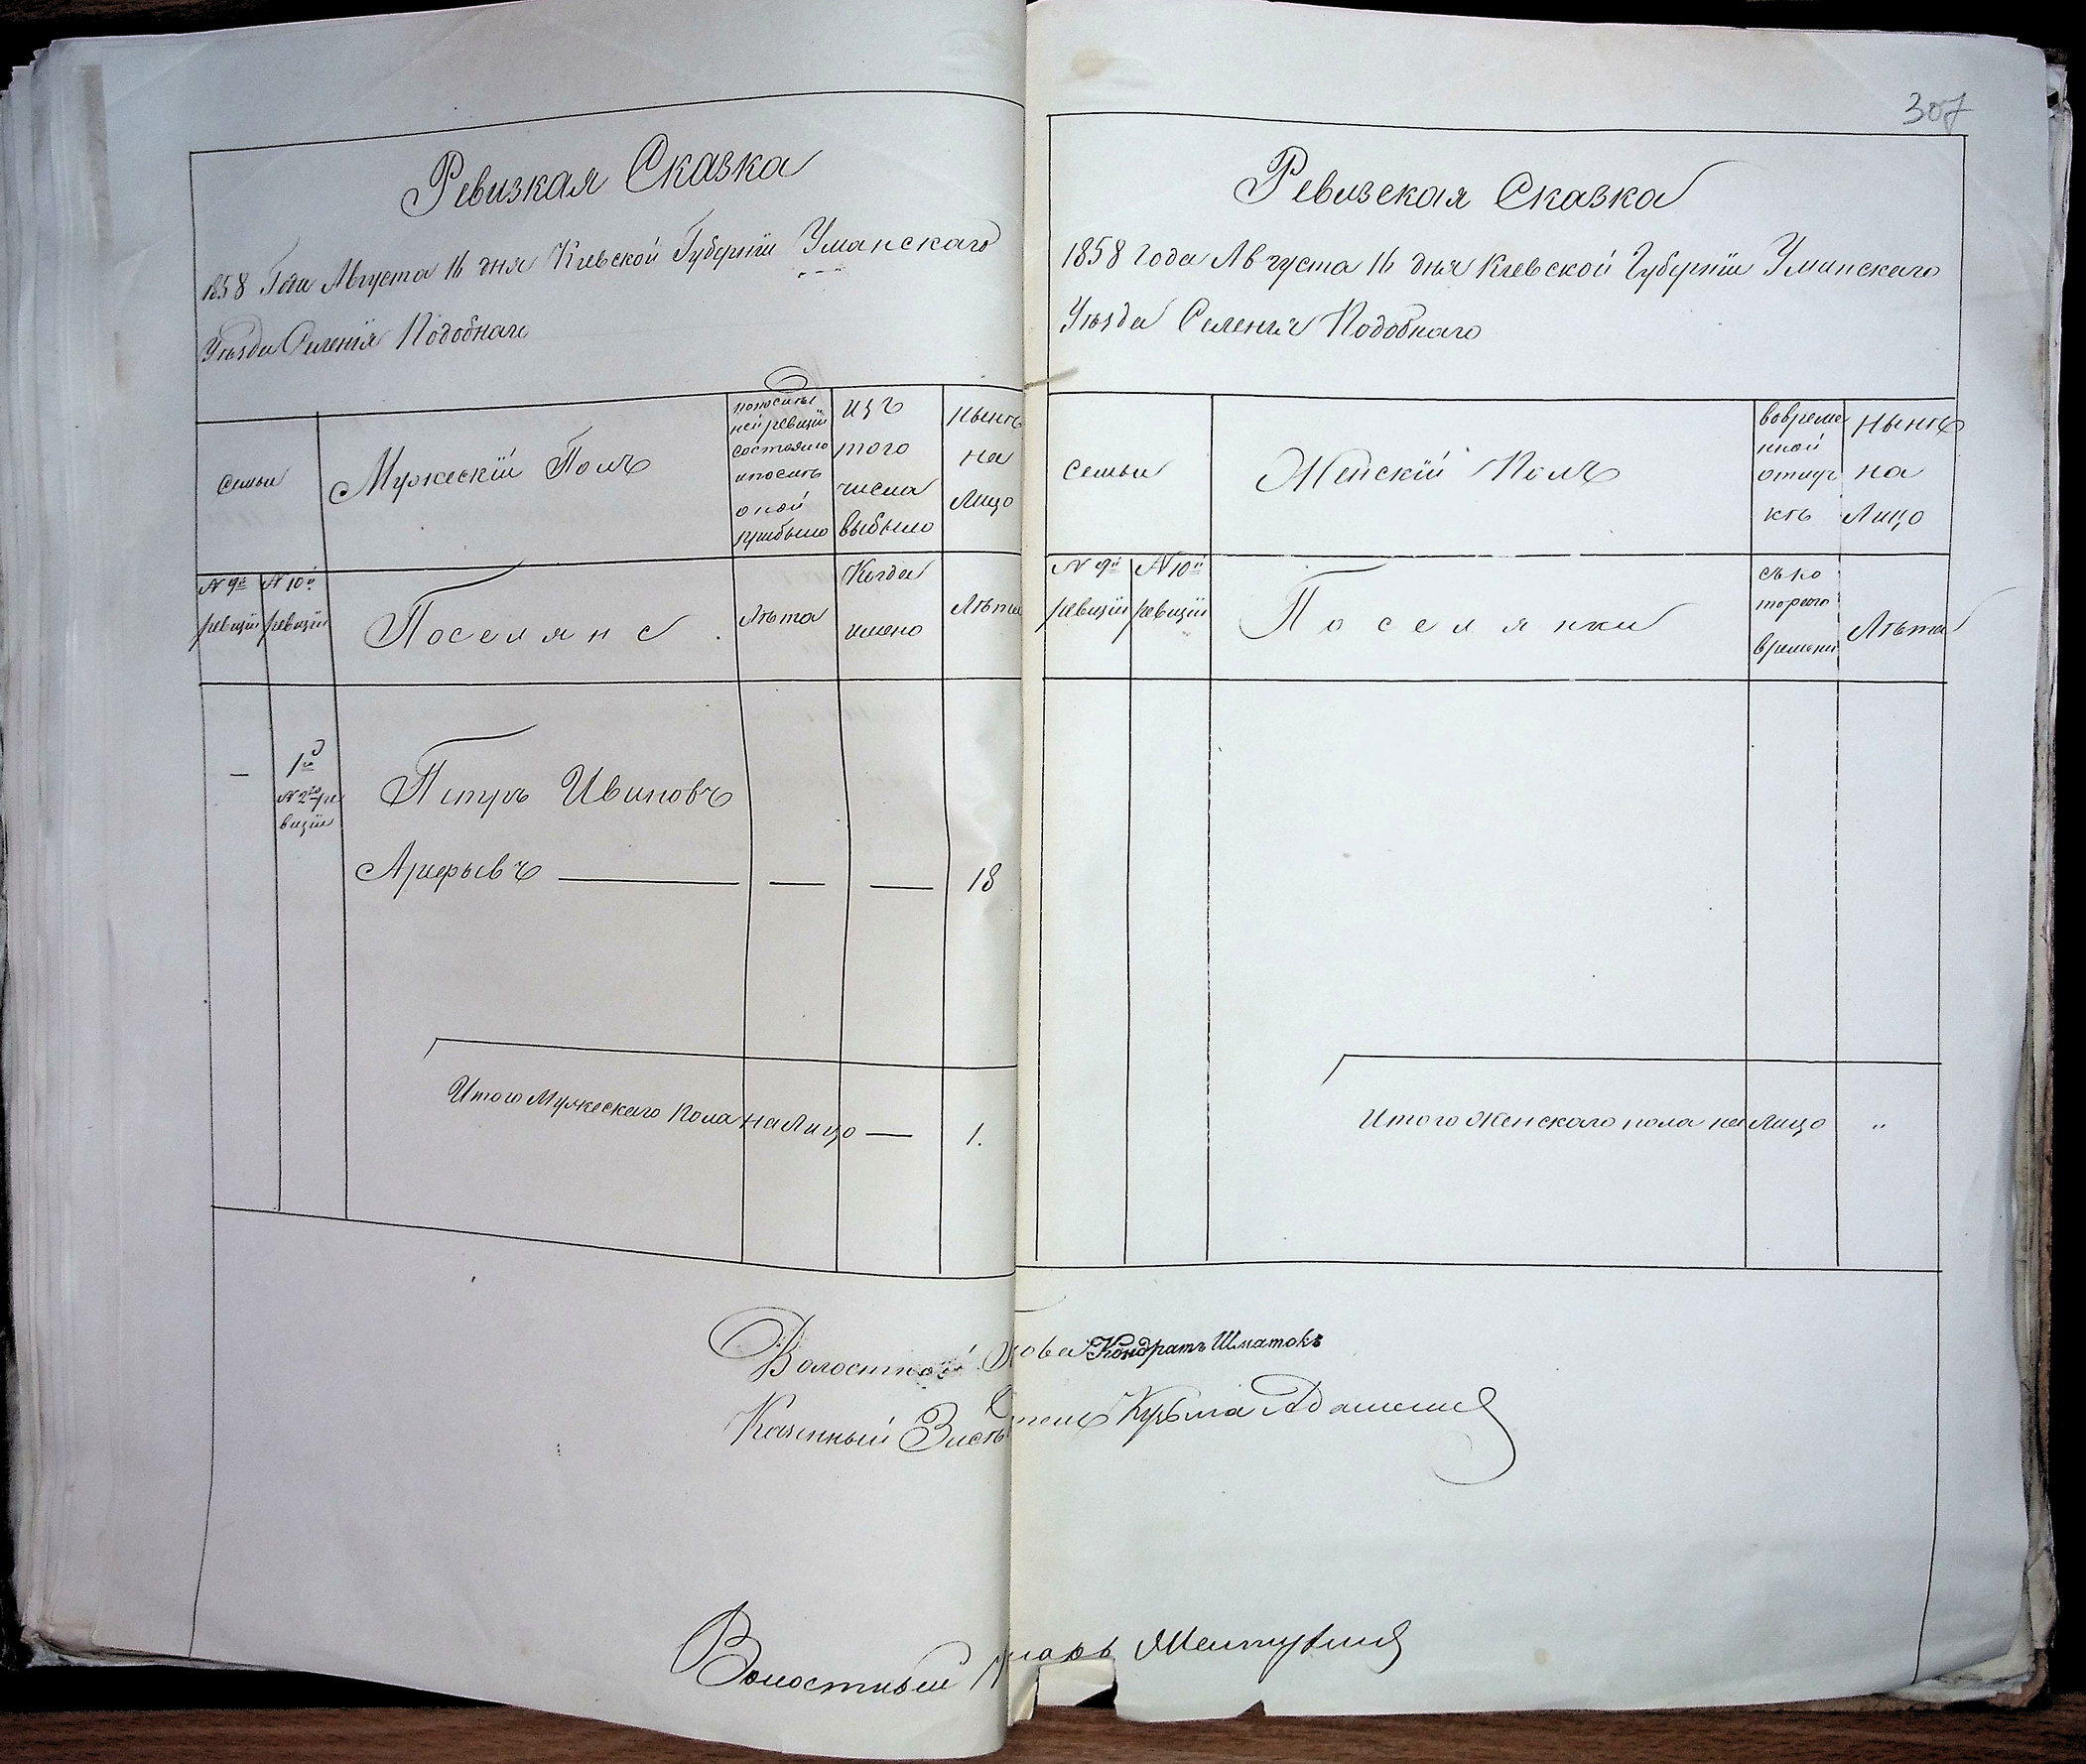 Ревизкая Сказка
1858 Года Августа 16 дня Кіевской Губерніи Уманскаго
Уѣзда Селенія Подобнаго
Семьи
Мужескій Полъ
по послѣд
ней ревизіи
состояло
и послѣ
оной
прибыло
изъ
того
числа
выбыло
Нынѣ
на
Лицо
№ 9й
ревизіи
№ 10й
ревизіи
Поселяне
Лѣта
Когда
имено
Лѣта
—
1й
№ 2го ре
визіи
Петръ Ивановъ
Арефьевъ — — — 18
Итого Мужескаго Пола на Лицо — 1.
307
Ревизская Сказка
1858 года Августа 16 дня Кіевской Губерніи Уманскаго
Уѣзда Селенія Подобнаго
Семьи
Женскій Полъ
во време
нной
отлуч
кѣ
Нынѣ
на
Лицо
№ 9й
ревизіи
№ 10й
ревизіи
Поселянки
съ ко
тораго
времени
Лѣта
Итого Женскаго пола на Лицо "
Волостной Голова Кондратъ Шматокъ
Казенный Засѣ Кузьма
Волостный Писарь